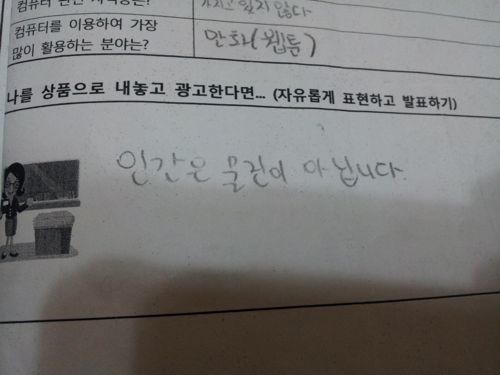 가지고 있지 않다
컴퓨터를 이용하여 가장
많이 활용하는 분야는?
만화(웹툰)
나를 상품으로 내놓고 광고한다면... (자유롭게 표현하고 발표하기)
인간은 물건이 아닙니다.